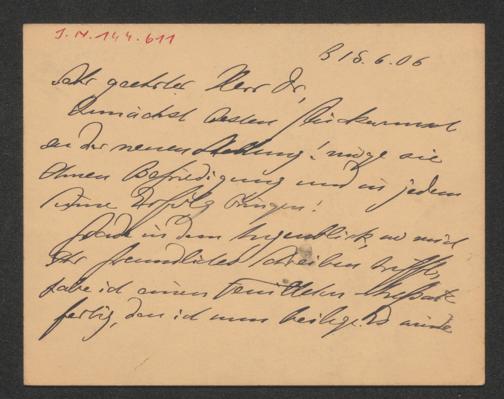 J.N. 144.611
B 15.6.06
Sehr geehrter Herr Dr,
Zunächst besten Glückwunsch
zu der neuen Stellung! möge sie
Ihnen Befriedigung und in jedem
Sinne Erfolg bringen!
Grade in dem Augenblick, wo mich
Ihr freundliches Schreiben trifft,
habe ich einen Feuilleton
fertig, den ich nun beilege. Es würde